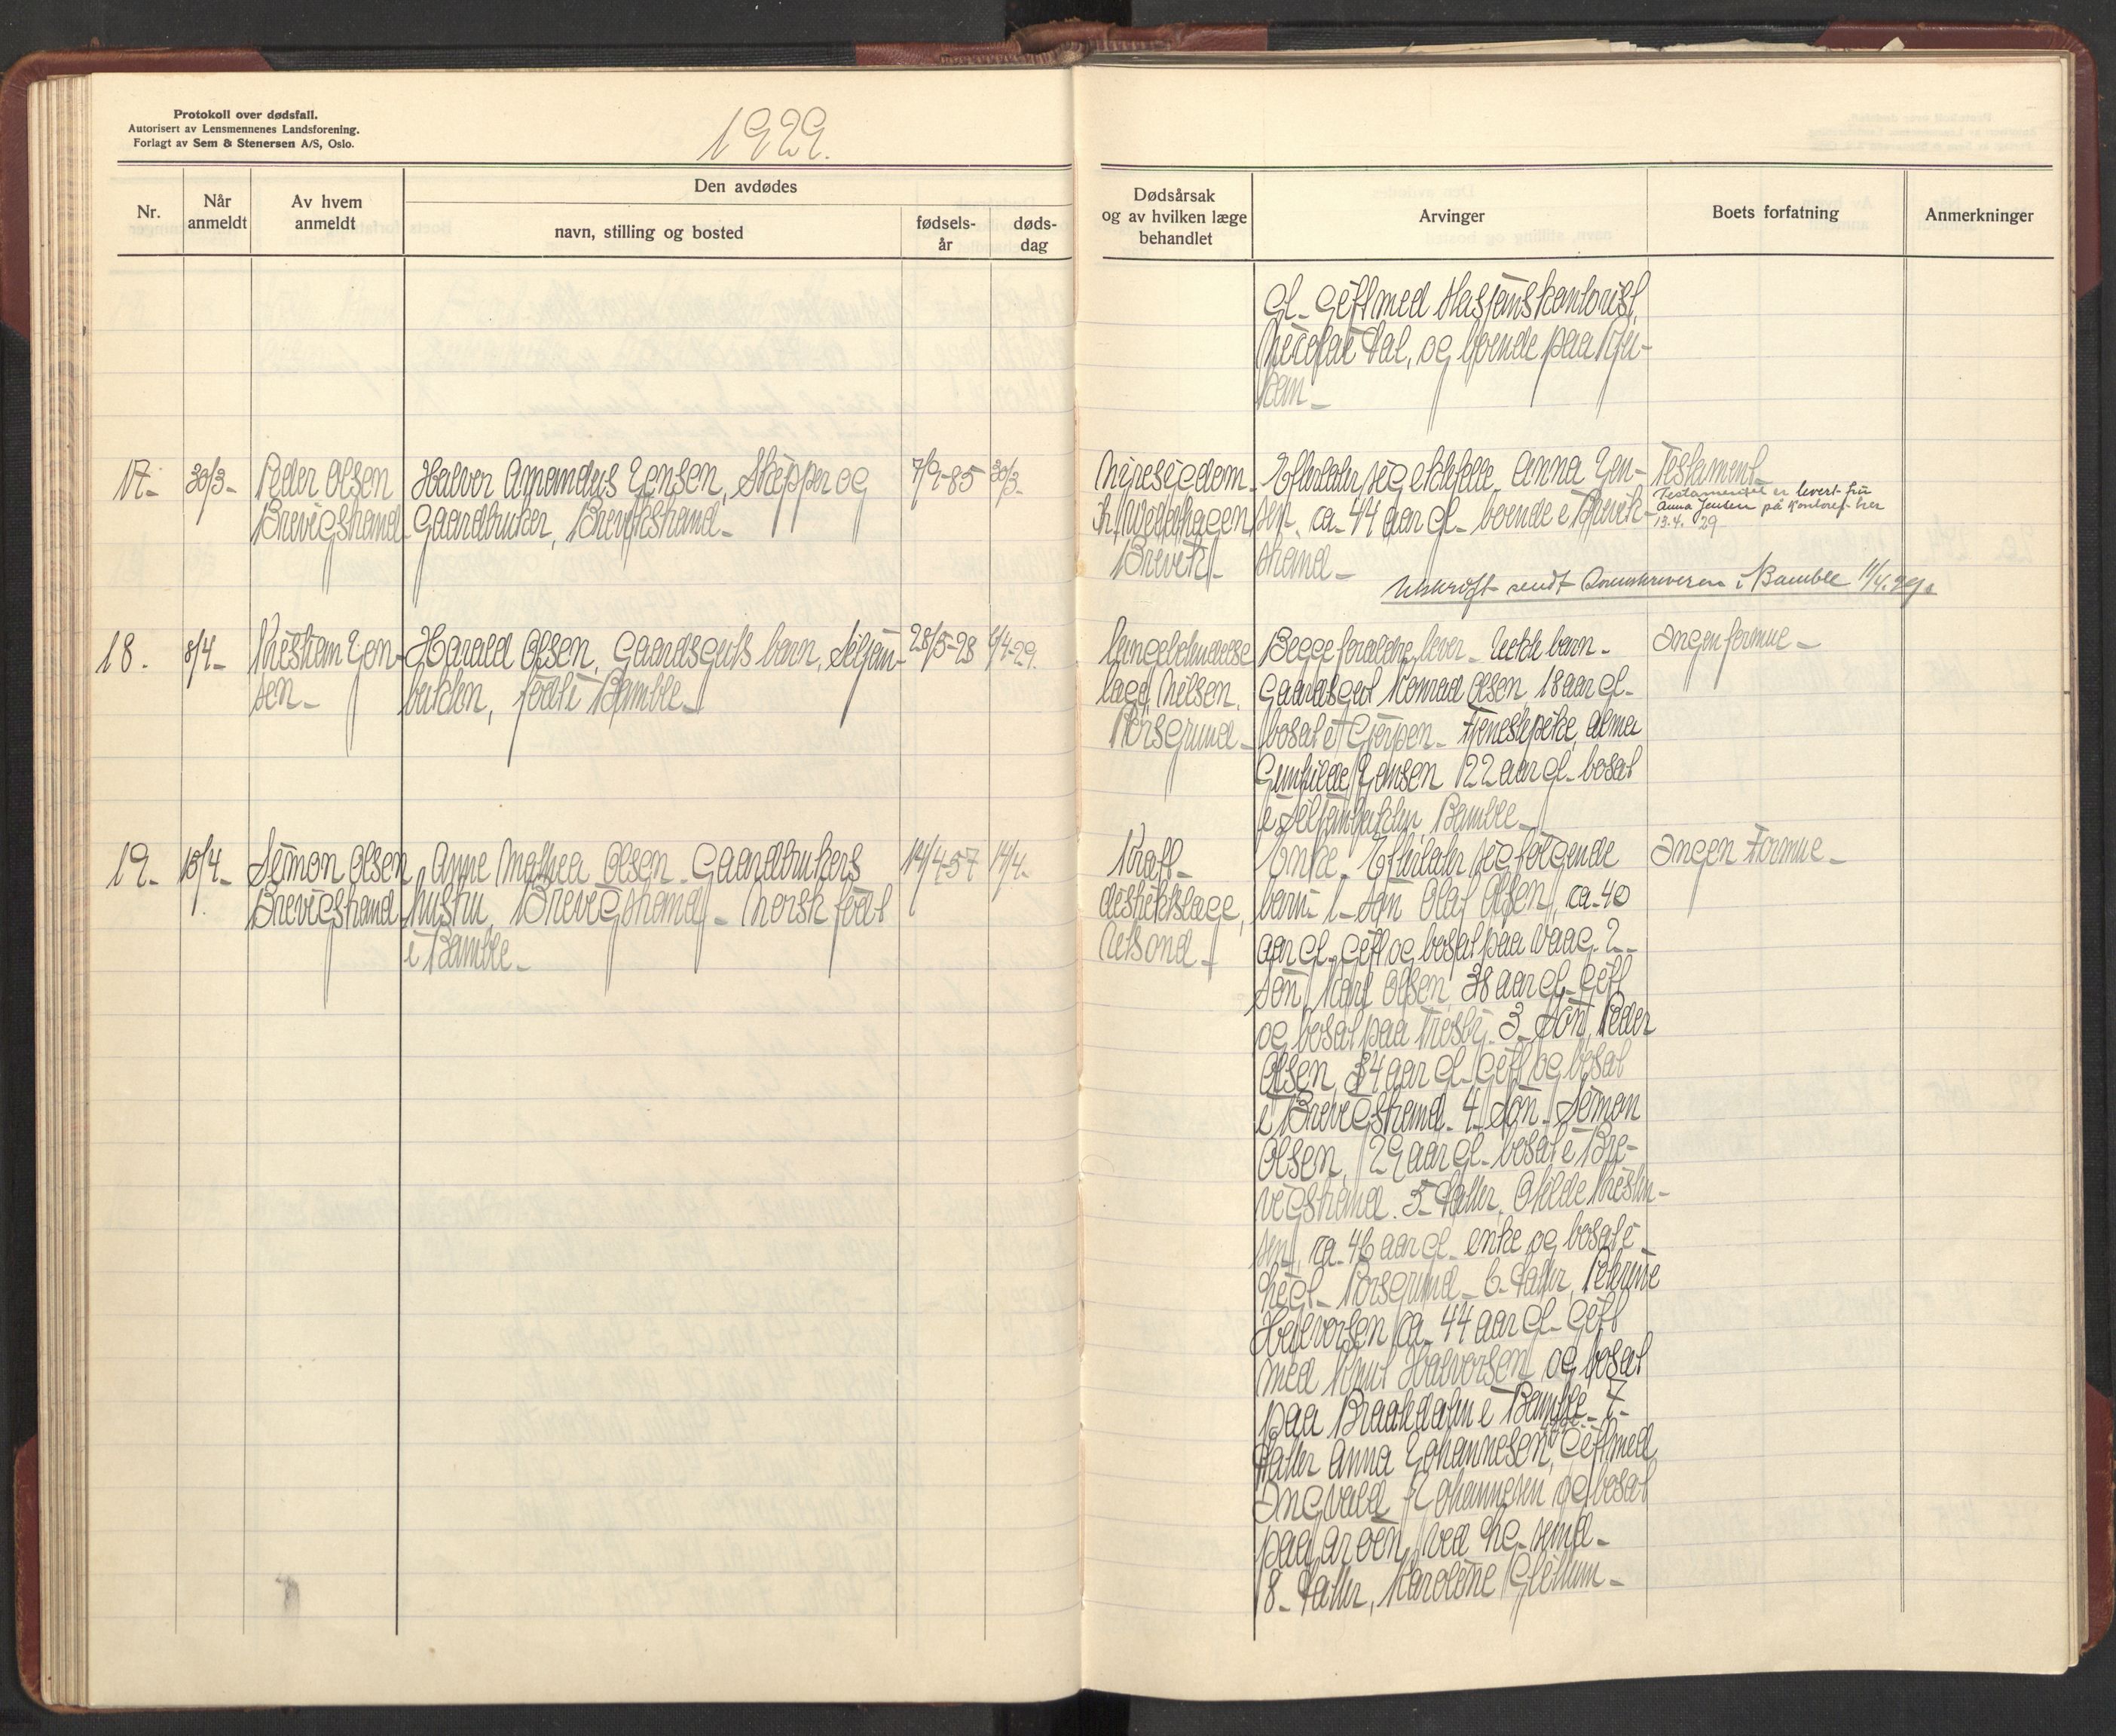 Protokoll over dødsfall.
Autorisert av Lensmennenes Landsforening.
Forlagt av Sem & Stenersen A/S, Oslo.
1929.
Nr.
Når anmeldt
Av hvem anmeldt
Den avdødes
navn, stilling og bosted
fødsels-
år
døds-
dag
Dødsårsak
og av hvilken læge
behandlet
Arvinger
Boets forfatning
Anmerkninger
gl. Gift med Stasjonskontorist
Nicolai Dal, og boende paa Rju-
kan -
17-
30/3-
Peder Olsen
Brevigstrand
Halvor Amandus Jensen, Skipper og
Gaardbruker, Brevikstrand -
7/9-85
30/3-
Nyresygdom
Brevik -
Efterlater sig ektefelle Anna Jen-
sen ca. 44 aar gl. boende i Brevik-
strand -
Testament
Testamentet er levert fru
Anna Jensen på kontoret her
13.4.29
Utskrift sendt Sorenskriveren i Bamble 11/4.29.
18.
8/4-
Kristian Jen-
sen -
Harald Olsen, Gaardsguts barn,
født i Bamble -
28/5-28
4-29.
Lungebetendelse
læge Nilsen,
Porsgrund -
Begge foraldre lever - Uekte barn -
Gaardsgut Konrad Olsen 18 aar gl.
bosat i Gjerpen - Tjenestepike Alma
Gunhilde Jonsen 22 aar gl - bosat
i Bamble -
Ingen formue -
19-
15/4-
Simon Olsen
Brevigstrand
Anne Mathea Olsen - Gaardbrukers
hustru, Brevigstrand - Norsk født
i Bamble -
14/4-57
14/4-
Kræft -
distriktslæge,
Enke - Efterlater sig følgende
barn - 1- Søn Olaf Olsen, ca. 40
aar gl. gift og bosat paa Vaag. 2-
Søn Karl Olsen 38 aar gl. gift
og bosat paa Trosby. 3- Søn Peder
Olsen, 34 aar gl. gift og bosat
i Brevigstrand. 4- Søn Simon
Olsen, 29 aar gl. bosat i Bre-
vigstrand. 5- Datter,
ca. 46 aar gl. enke og bosat i
Porsgrund - 6- Datter, Petrine
Halvorsen ca. 44 aar gl. gift
med Knut Halvorsen og bosat
paa Braatedalen i Bamble - 7-
Datter Anna Johannesen, gift med
Ingvald Johannesen og bosat
paa Arøen ved
8- Datter, Karoline
Ingen Formue -